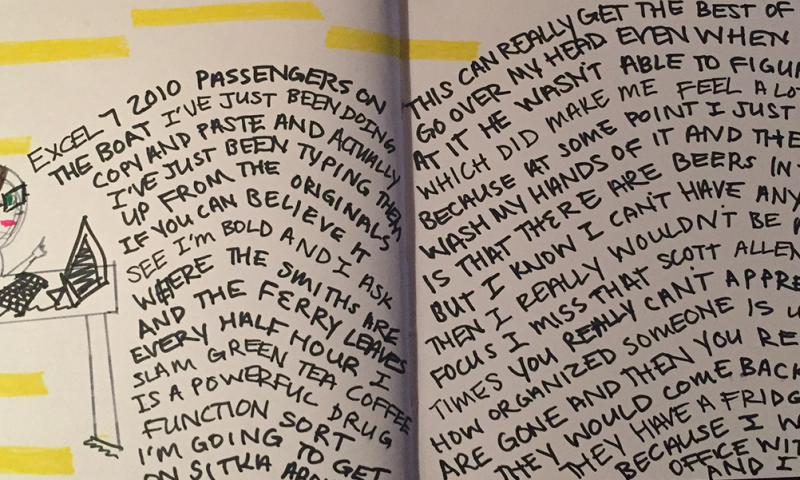 EXCEL 7 2010 PASSENGERS ON
THE BOAT I'VE JUST BEEN DOING
COPY AND PASTE AND ACTUALLY
I'VE JUST BEEN TYPING THEM
UP FROM THE ORIGINALS
IF YOU CAN BELIEVE IT
SEE I'M BOLD AND I ASK
WHERE THE SMITHS ARE
AND THE FERRY LEAVES
EVERY HALF HOUR I
SLAM GREEN TEA COFFEE
IS A POWERFUL DRUG
FUNCTION SORT
I'M GOING TO GET
ON SITKA
THIS CAN REALLY GET THE BEST OF
GO OVER MY HEAD EVEN WHEN
AT IT HE WASN'T ABLE TO
WHICH DID MAKE ME FEEL A LOT
BECAUSE AT SOME POINT I JUST
WASH MY HANDS OF IT AND
IS THAT THERE ARE BEERS IN
BUT I KNOW I CAN'T HAVE ANY
THEN I REALLY WOULDN'T BE
FOCUS I MISS THAT SCOTT ALLEN
TIMES YOU REALLY CAN'T
HOW ORGANIZED SOMEONE IS
ARE GONE AND THEN YOU
THEY WOULD COME BACK
THEY HAVE A
BECAUSE I
OFFICE
AND I